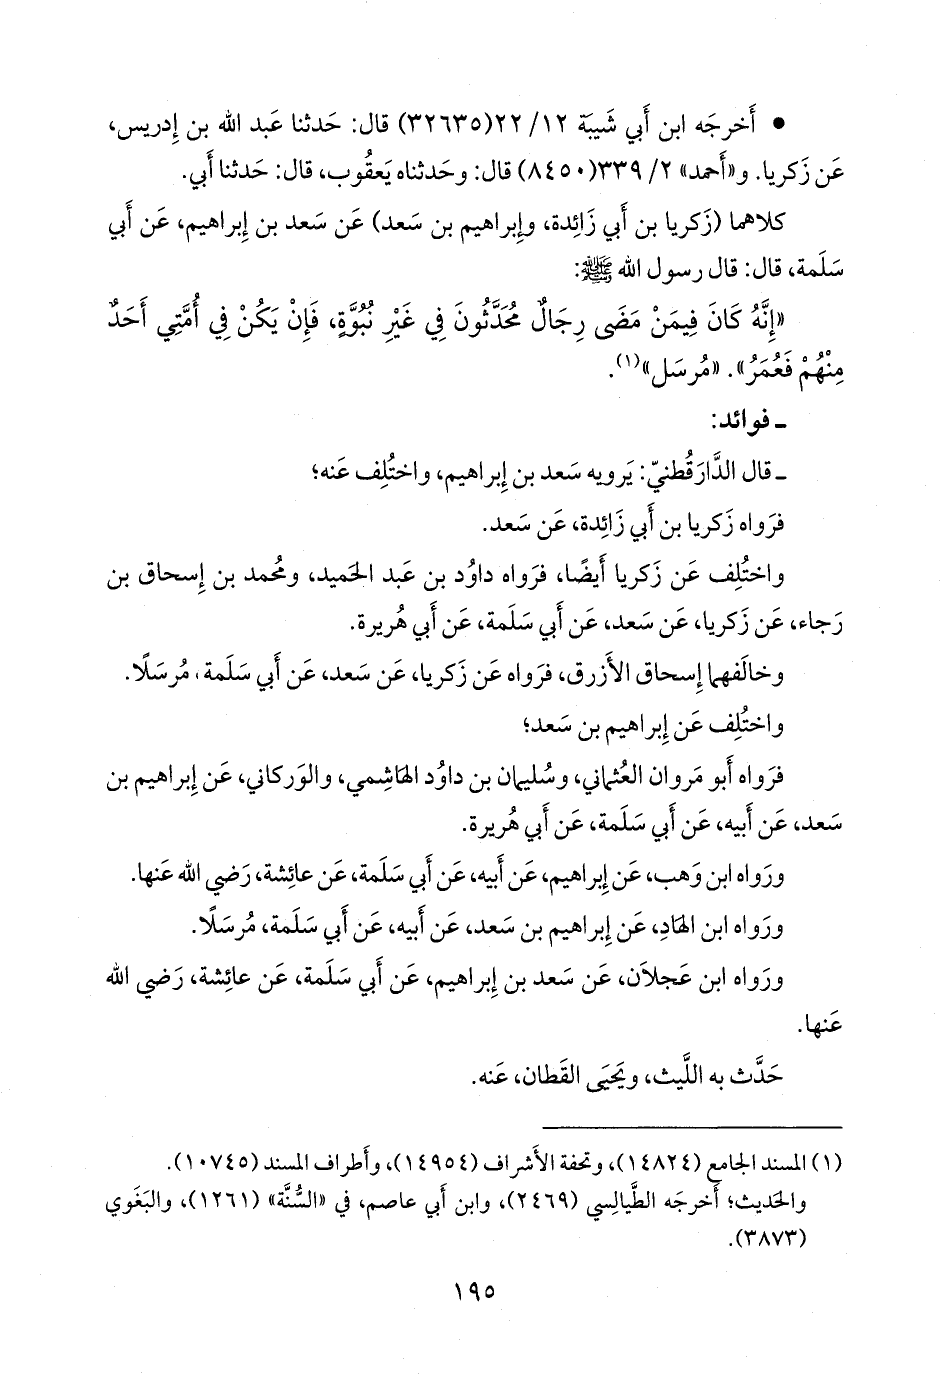 • أَخرجَه ابن أَبي شَيبَة ١٢/ ٢٢(٣٢٦٣٥) قال: حَدثنا عَبد الله بن إِدريس،
عَن زَكريا. و«أَحمد» ٢/ ٣٣٩(٨٤٥٠) قال: وحَدثناه يَعقُوب، قال: حَدثنا أَبي.
كلاهما (زَكريا بن أَبي زَائِدة، وإِبراهيم بن سَعد) عَن سَعد بن إِبراهيم، عَن أَبي
سَلَمة، قال: قال رسول الله ﷺ:
«إِنَّهُ كَانَ فِيمَنْ مَضَى رِجَالٌ مُحَدَّثُونَ فِي غَيْرِ نُبُوَّةٍ، فَإِنْ يَكُنْ فِي أُمَّتِي أَحَدٌ
مِنْهُمْ فَعُمَرُ». «مُرسَل»(١).
ـ فوائد:
ـ قال الدَّارَقُطنيّ: يَرويه سَعد بن إِبراهيم، واختُلِف عَنه؛
فرَواه زَكريا بن أَبي زَائِدة، عَن سَعد.
واختُلِف عَن زَكريا أَيضًا، فرَواه داوُد بن عَبد الحَميد، ومُحمد بن إِسحاق بن
رَجاء، عَن زَكريا، عَن سَعد، عَن أَبي سَلَمة، عَن أَبي هُريرة.
وخالَفهما إِسحاق الأَزرق، فرَواه عَن زَكريا، عَن سَعد، عَن أَبي سَلَمة، مُرسَلًا.
واختُلِف عَن إِبراهيم بن سَعد؛
فرَواه أَبو مَروان العُثماني، وسُليمان بن داوُد الهاشِمي، والوَركاني، عَن إِبراهيم بن
سَعد، عَن أَبيه، عَن أَبي سَلَمة، عَن أَبي هُريرة.
ورَواه ابن وَهب، عَن إِبراهيم، عَن أَبيه، عَن أَبي سَلَمة، عَن عائِشة، رَضي الله عَنها.
ورَواه ابن الهادِ، عَن إِبراهيم بن سَعد، عَن أَبيه، عَن أَبي سَلَمة، مُرسَلًا.
ورَواه ابن عَجلاَن، عَن سَعد بن إِبراهيم، عَن أَبي سَلَمة، عَن عائِشة، رَضي الله
عَنها.
حَدَّث به اللَّيث، ويَحيَى القَطان، عَنه.
(١) المسند الجامع (١٤٨٢٤)، وتحفة الأشراف (١٤٩٥٤)، وأطراف المسند (١٠٧٤٥).
والحَديث؛ أَخرجَه الطَّيالِسي (٢٤٦٩)، وابن أَبي عاصم، في «السُّنَّة» (١٢٦١)، والبَغَوي
(٣٨٧٣).
١٩٥